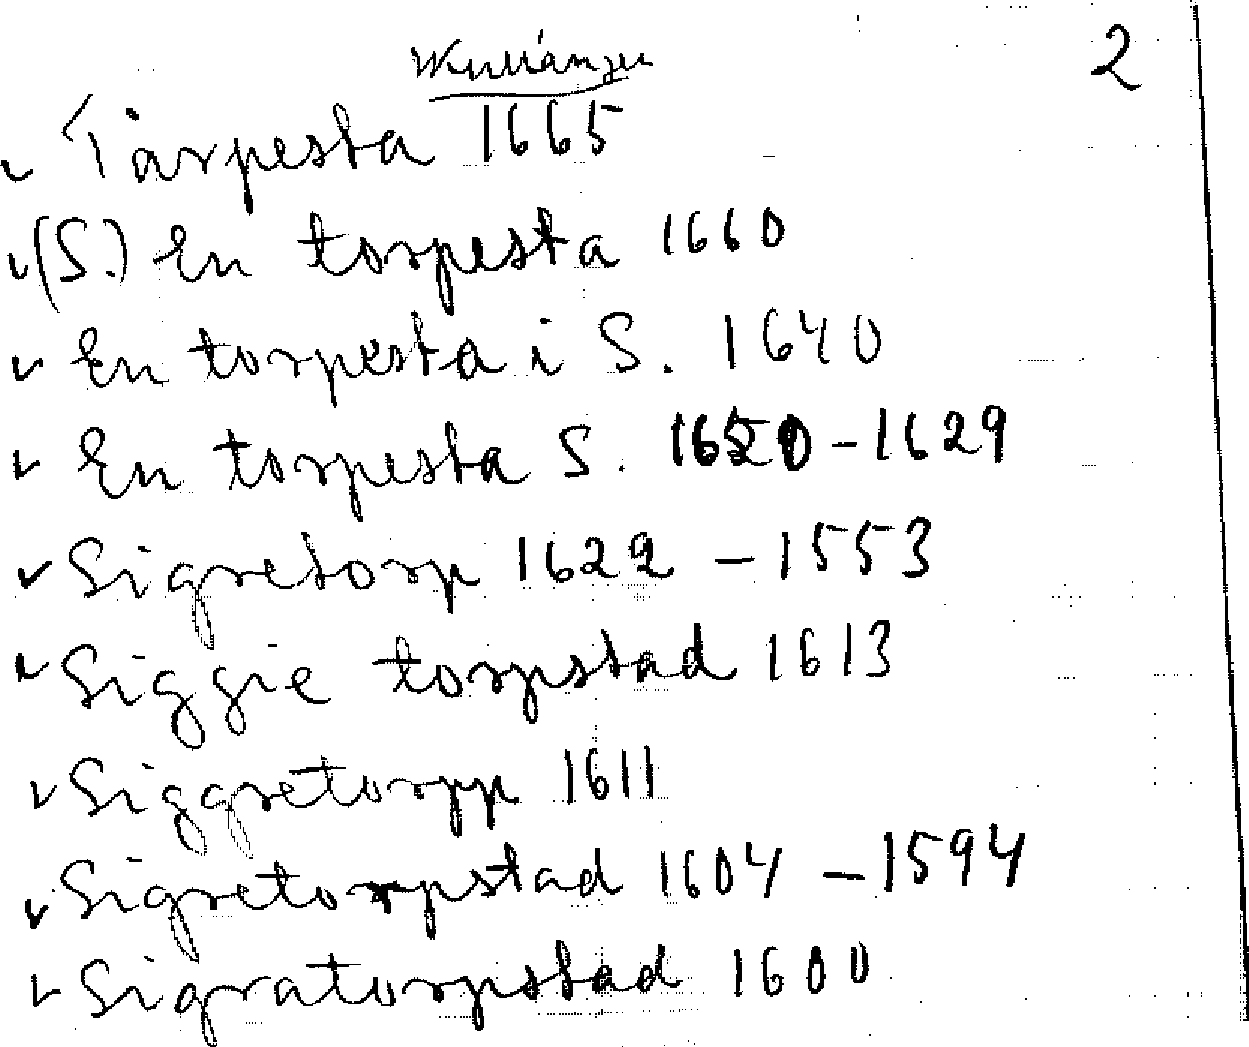 2
Tarpesta 1665
(S.) En torpesta 1660
En torpesta i S. 1640
En torpesta S. 1620-1629
Sigretorp 1622 - 1553
Siggie torpstad 1613
Siggretorpp 1611
Sigretorpstad 1604 - 1594
Sigratorpstad 1600